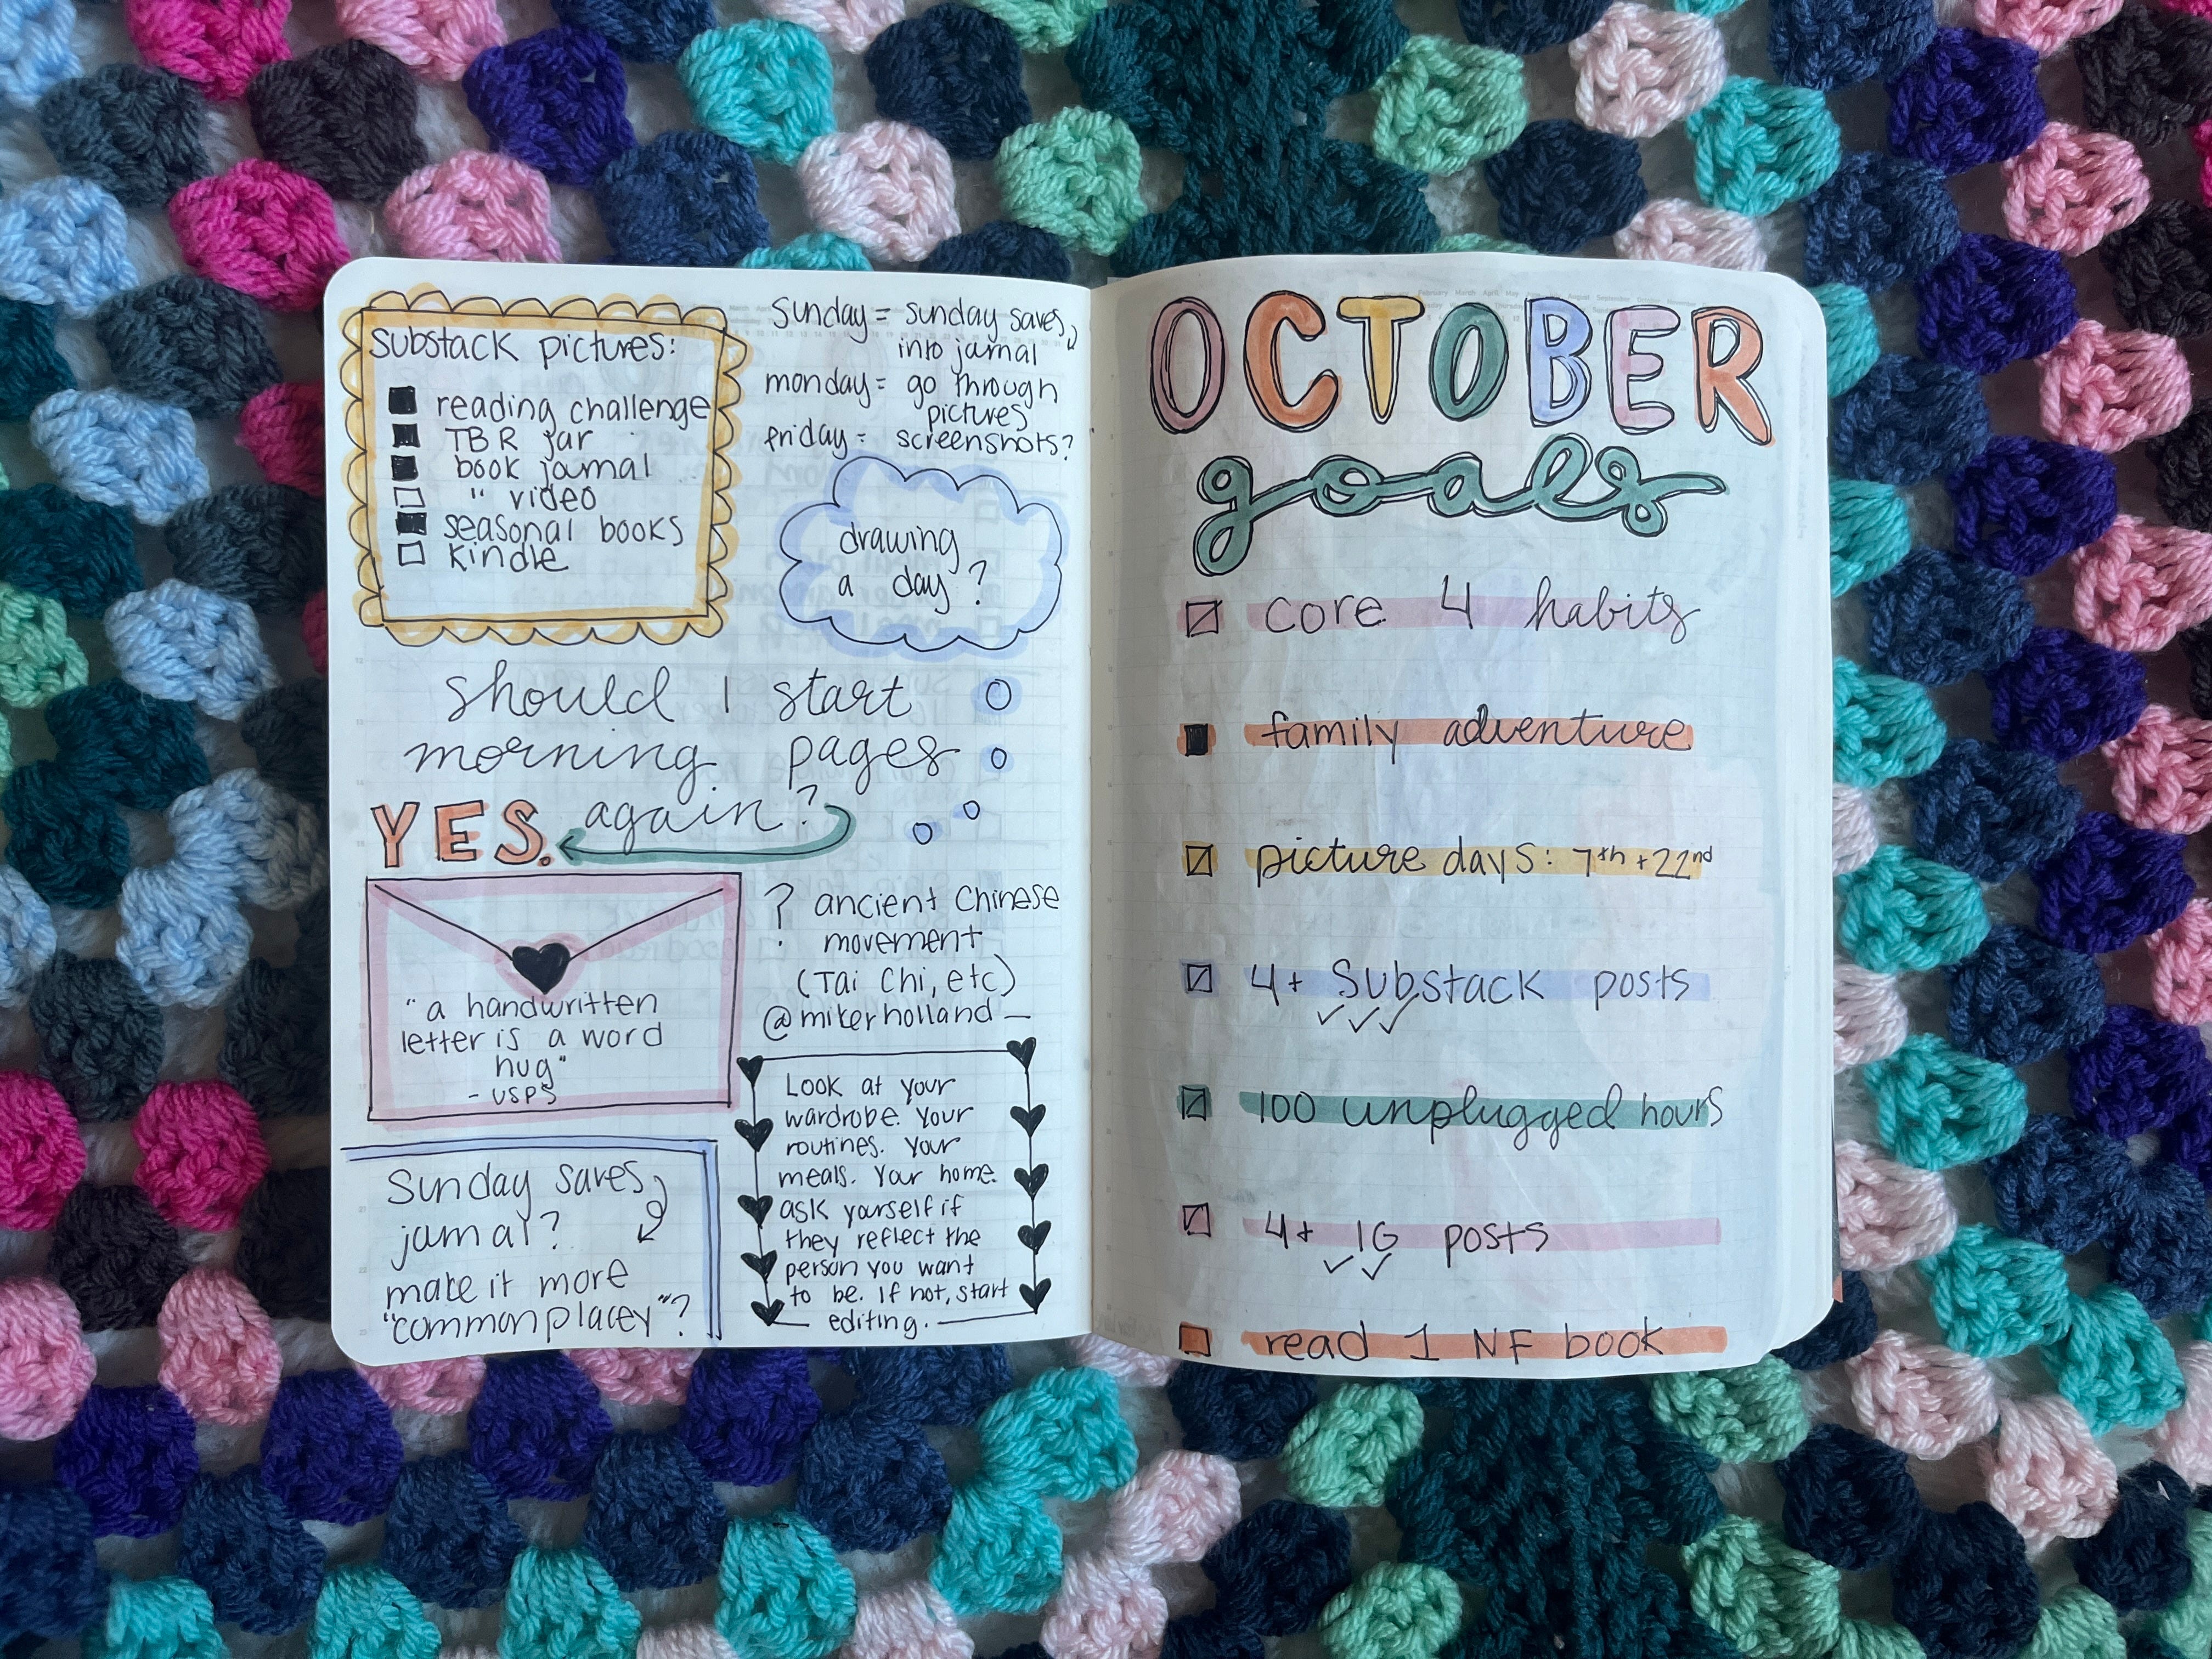 Substack pictures:
reading challenge
TBR jar
book jarnal
" video
seasonal books
kindle
Sunday = sunday saves
into jarnal
monday = go through
pictures
friday = screenshots?
drawing
a day?
should I start
morning pages
again?
YES.
"a handwritten
letter is a word
hug"
- USPS
? ancient Chinese
movement
(Tai Chi, etc)
@mikerholland
Sunday saves
jarnal?
make it more
"commonplacey"?
Look at your
wardrobe. Your
routines. Your
meals. Your home.
ask yourself if
they reflect the
person you want
to be. If not, start
editing.
OCTOBER
goals
core 4 habits
family adventure
picture days: 7th + 22nd
4+ Substack posts
100 unplugged hours
4+ IG posts
read 1 NF book